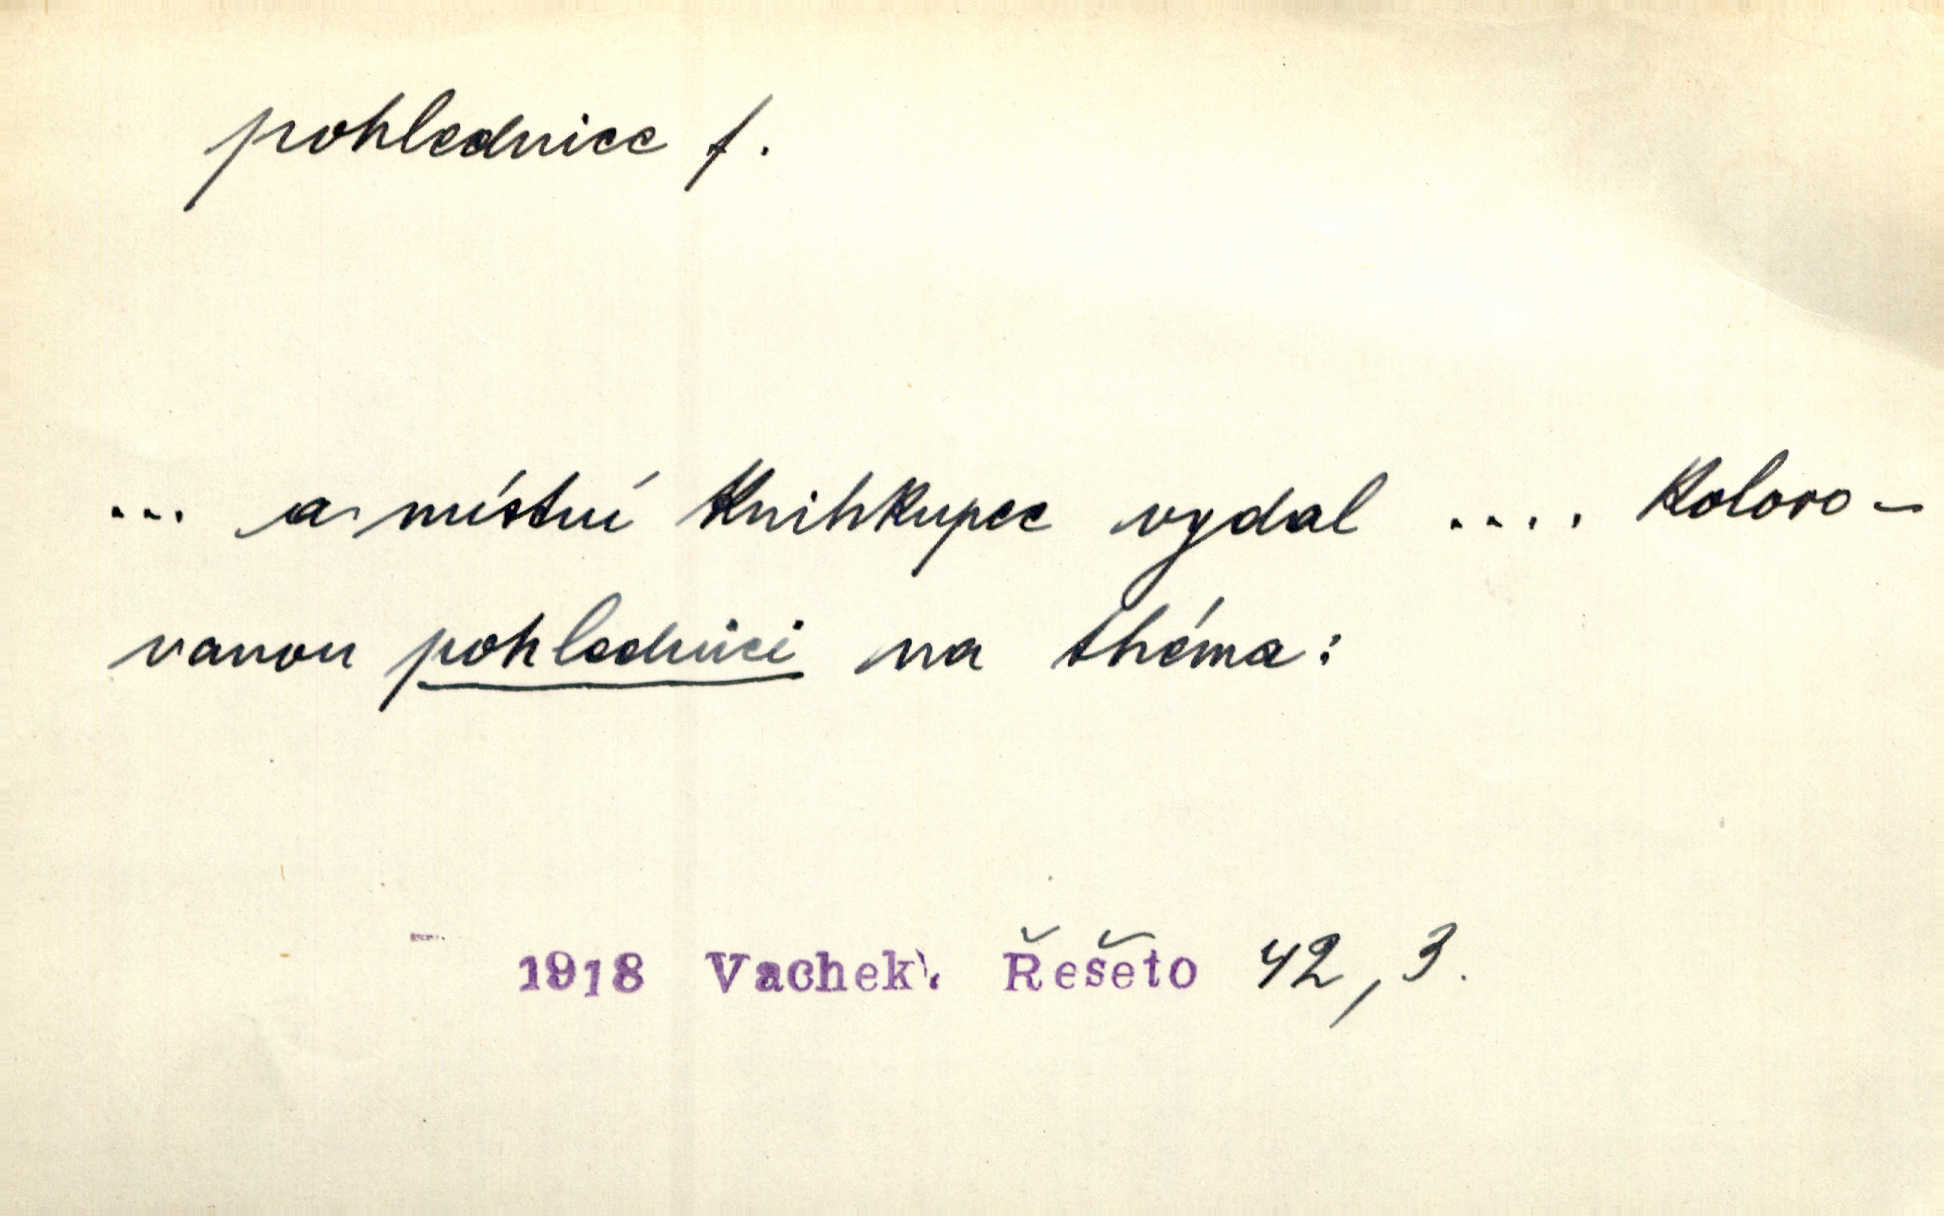 pohlednice f.
... a místní knihkupec vydal .... koloro-
vanou pohlednici na théma:
1918 Vachek: Řešeto 42, 3.